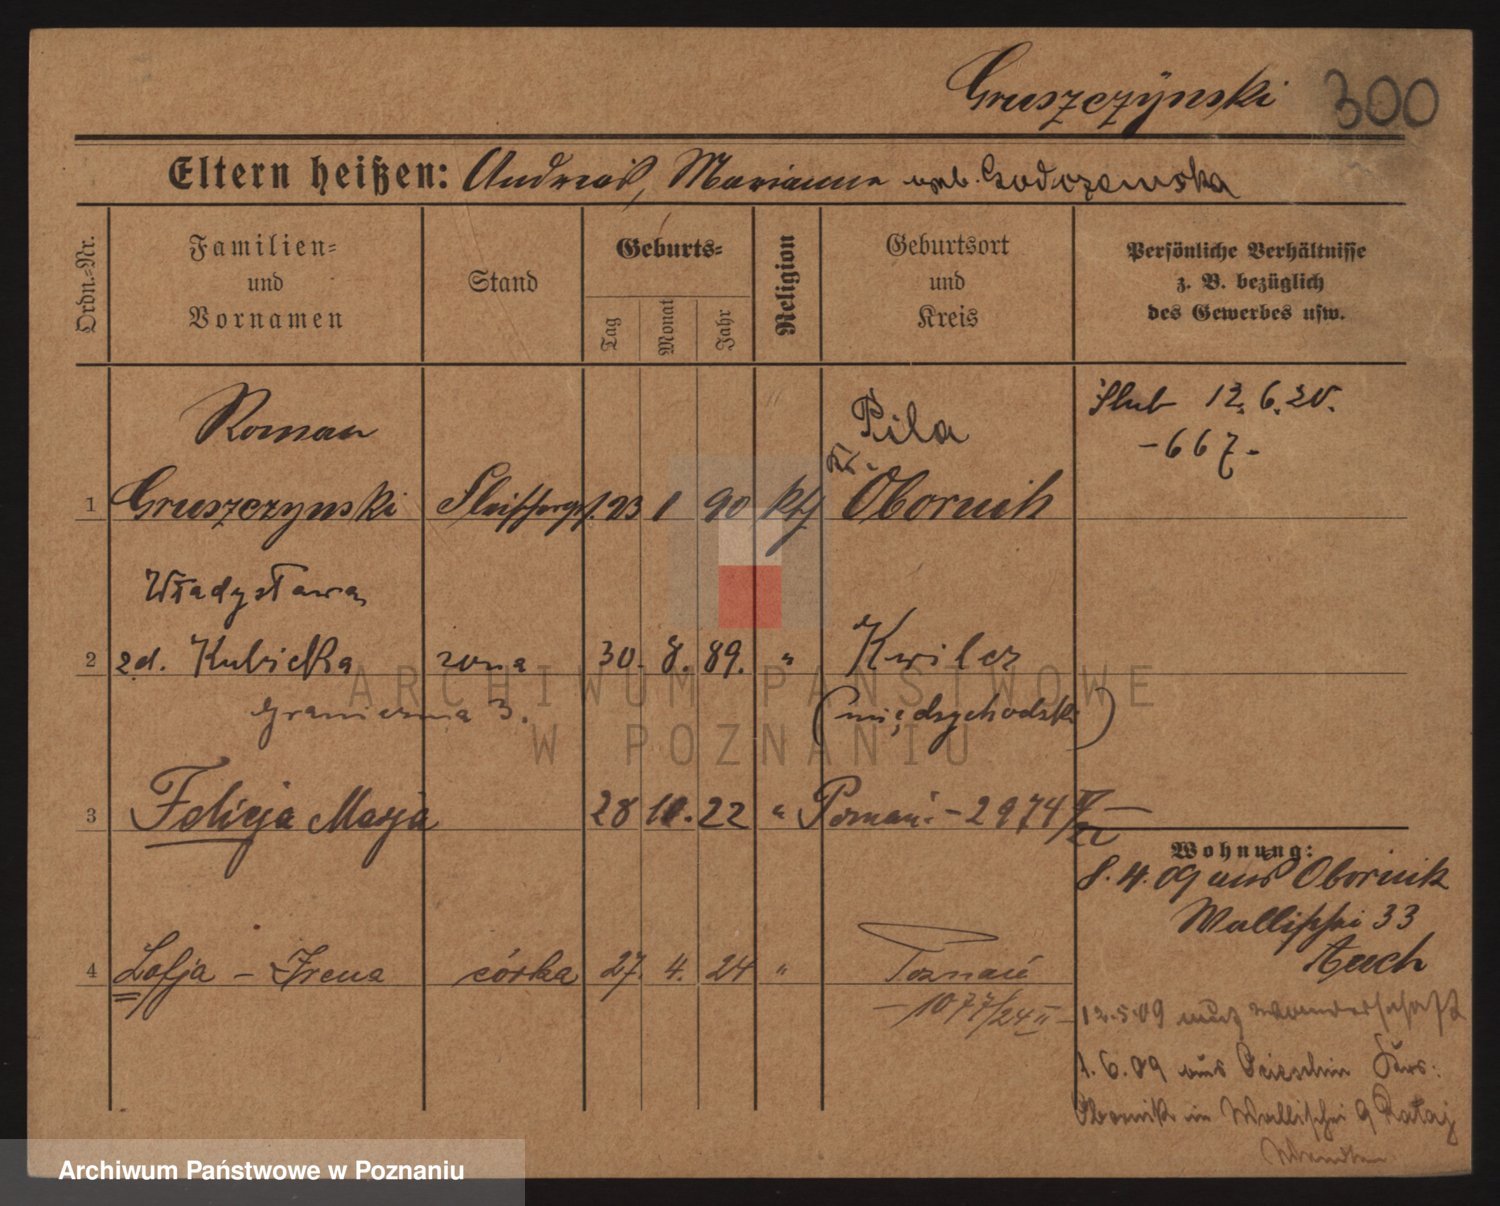 Gruszczÿnski 300
Eltern heißen: Andreas, Marianna
Ordn.-Nr.
Familien- und Vornamen
Stand
Geburts-
Tag
Monat
Jahr
Religion
Geburtsort und Kreis
Persönliche Verhältnisse
z. B. bezüglich
des Gewerbes usw.
Roman Pila Ślub 12.6.20.
Kr. -667-
1 Gruszczynski 23 1 90 kth Obornik
Władysława
2 zd. Kubicka żona 30. 8. 89. " Kwilcz
Graniczna 3. (międzychodzki)
3 Felicja Marja 28 10. 22 " Poznań - 2974
Wohnung:
8.4.09 aus Obornik
Wallischei 33
4 Zofja - Irena córka 27. 4. 24 " Poznań
- 1077/24 II -
12.5.09 auf Wanderschaft
1.6.09 aus
Obornik in Wallischei 9 Rataj
Archiwum Państwowe
w Poznaniu
Archiwum Państwowe w Poznaniu